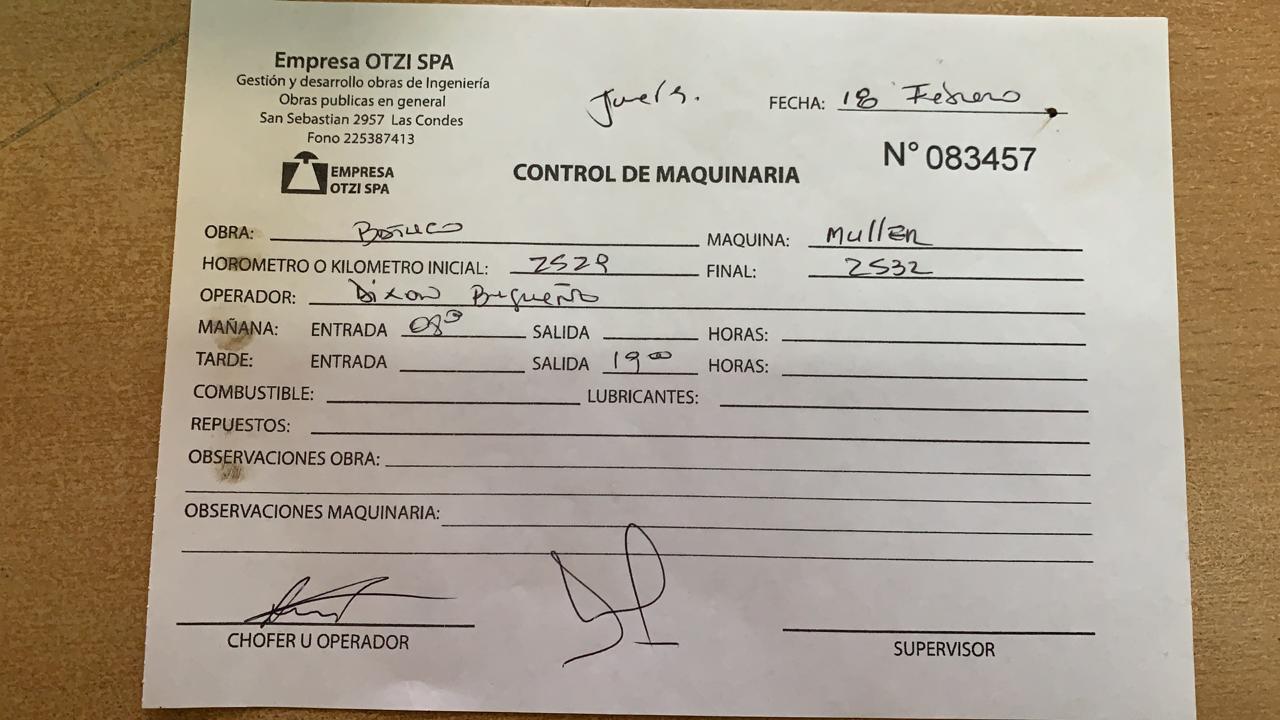 Empresa OTZI SPA
Gestión y desarrollo obras de Ingeniería
Obras publicas en general
San Sebastian 2957 Las Condes
Fono 225387413
EMPRESA
OTZI SPA
FECHA: 18 Febrero
N° 083457
CONTROL DE MAQUINARIA
OBRA: MAQUINA: Muller
HOROMETRO O KILOMETRO INICIAL: 2529 FINAL: 2532
OPERADOR: Dixon
MAÑANA: ENTRADA 08 SALIDA HORAS:
TARDE: ENTRADA SALIDA 19 00 HORAS:
COMBUSTIBLE: LUBRICANTES:
REPUESTOS:
OBSERVACIONES OBRA:
OBSERVACIONES MAQUINARIA:
CHOFER U OPERADOR SUPERVISOR